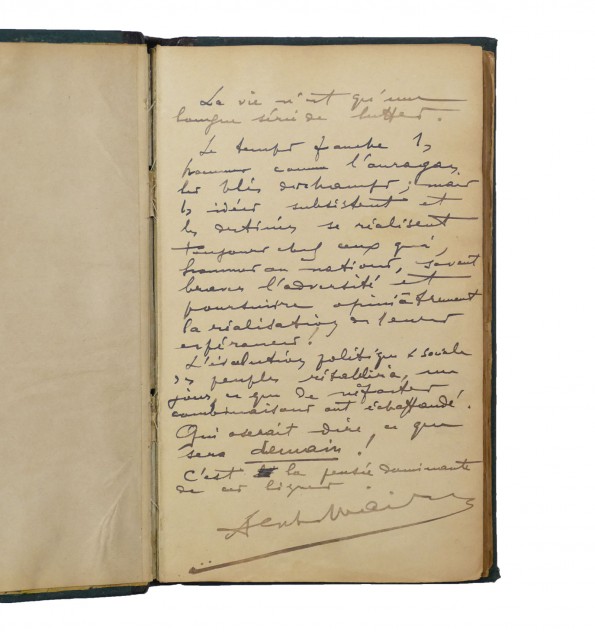 La vie n'est qu'une
longue série de luttes.
Le temps fauche les
hommes comme l'ouragan,
les blés des champs ; mais
les idées subsistent et
les destinées se réalisent
toujours chez ceux qui,
hommes ou nations, savent
braver l'adversité et
poursuivre opiniâtrement
la réalisation de leurs
espérances.
L'évolution politique & sociale
des peuples rétablira, un
jour, ce que de néfastes
combinaisons ont échaffaudé.
Qui oserait dire, ce que
sera demain !
C'est la pensée dominante
de ces lignes.